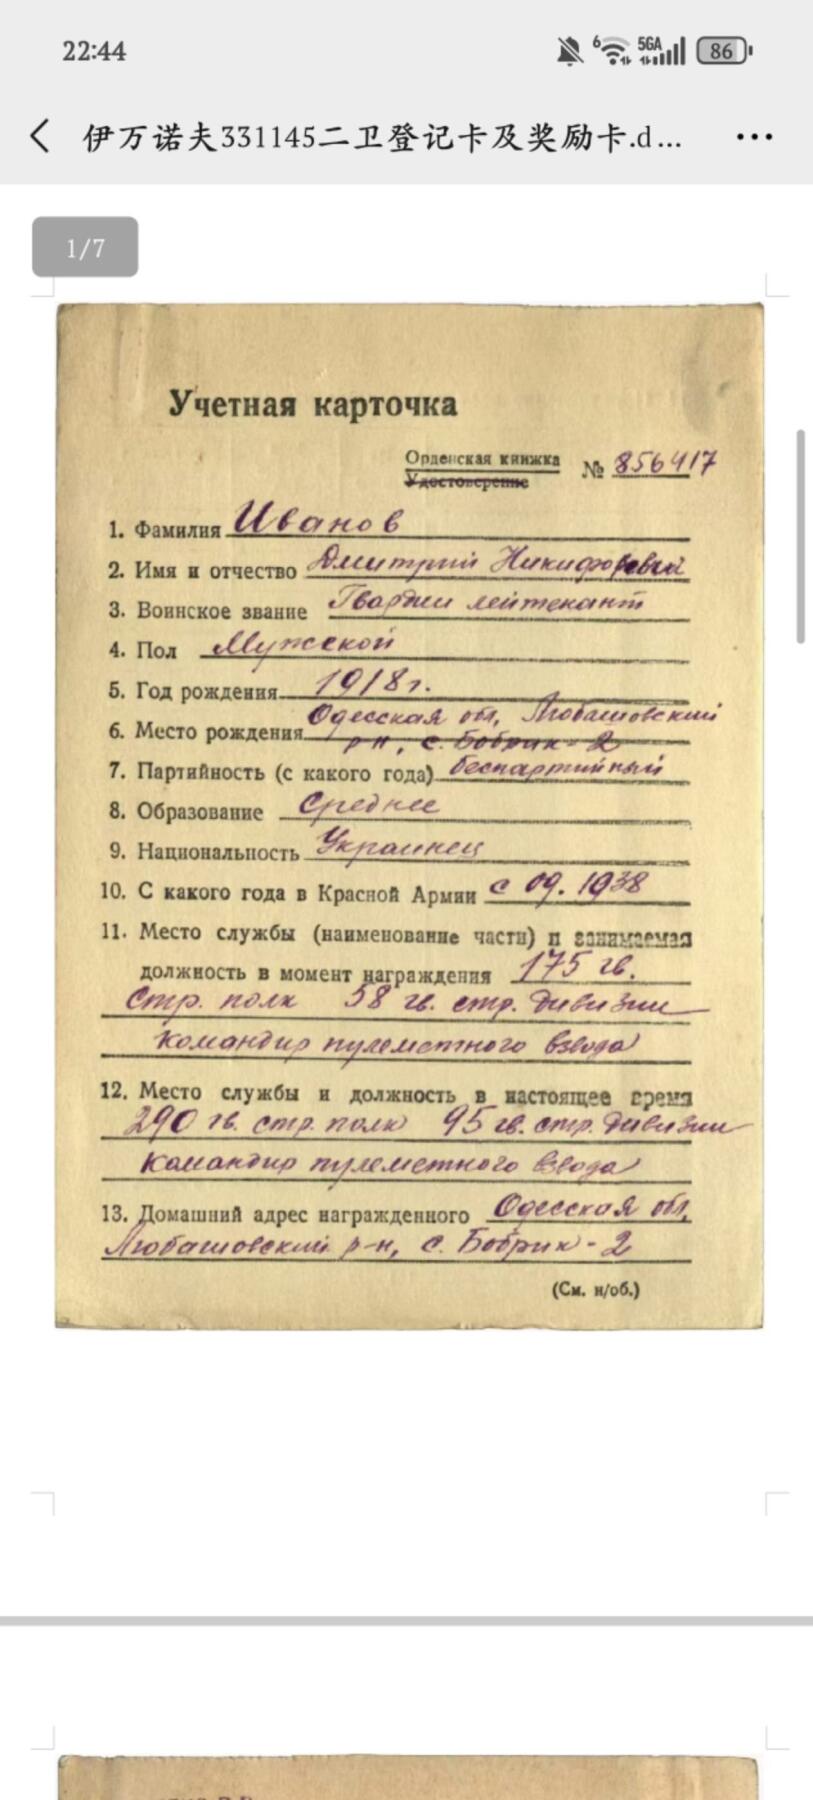 22:44
6 5GA 86
伊万诺夫331145二卫登记卡及奖励卡.d...
1/7
Учетная карточка
Орденская книжка
Удостоверение № 856417
1. Фамилия Иванов
2. Имя и отчество Дмитрий Никифорович
3. Воинское звание Гвардии лейтенант
4. Пол Мужской
5. Год рождения 1918 г.
6. Место рождения Одесская обл, Любашовский
р-н, с. Бобрик-2
7. Партийность (с какого года) беспартийный
8. Образование Среднее
9. Национальность Украинец
10. С какого года в Красной Армии с 09. 1938
11. Место службы (наименование части) и занимаемая
должность в момент награждения 175 гв.
стр. полк 58 гв. стр. дивизии
командир пулеметного взвода
12. Место службы и должность в настоящее время
290 гв. стр. полк 95 гв. стр. дивизии
командир пулеметного взвода
13. Домашний адрес награжденного Одесская обл,
Любашовский р-н, с. Бобрик-2
(См. н/об.)